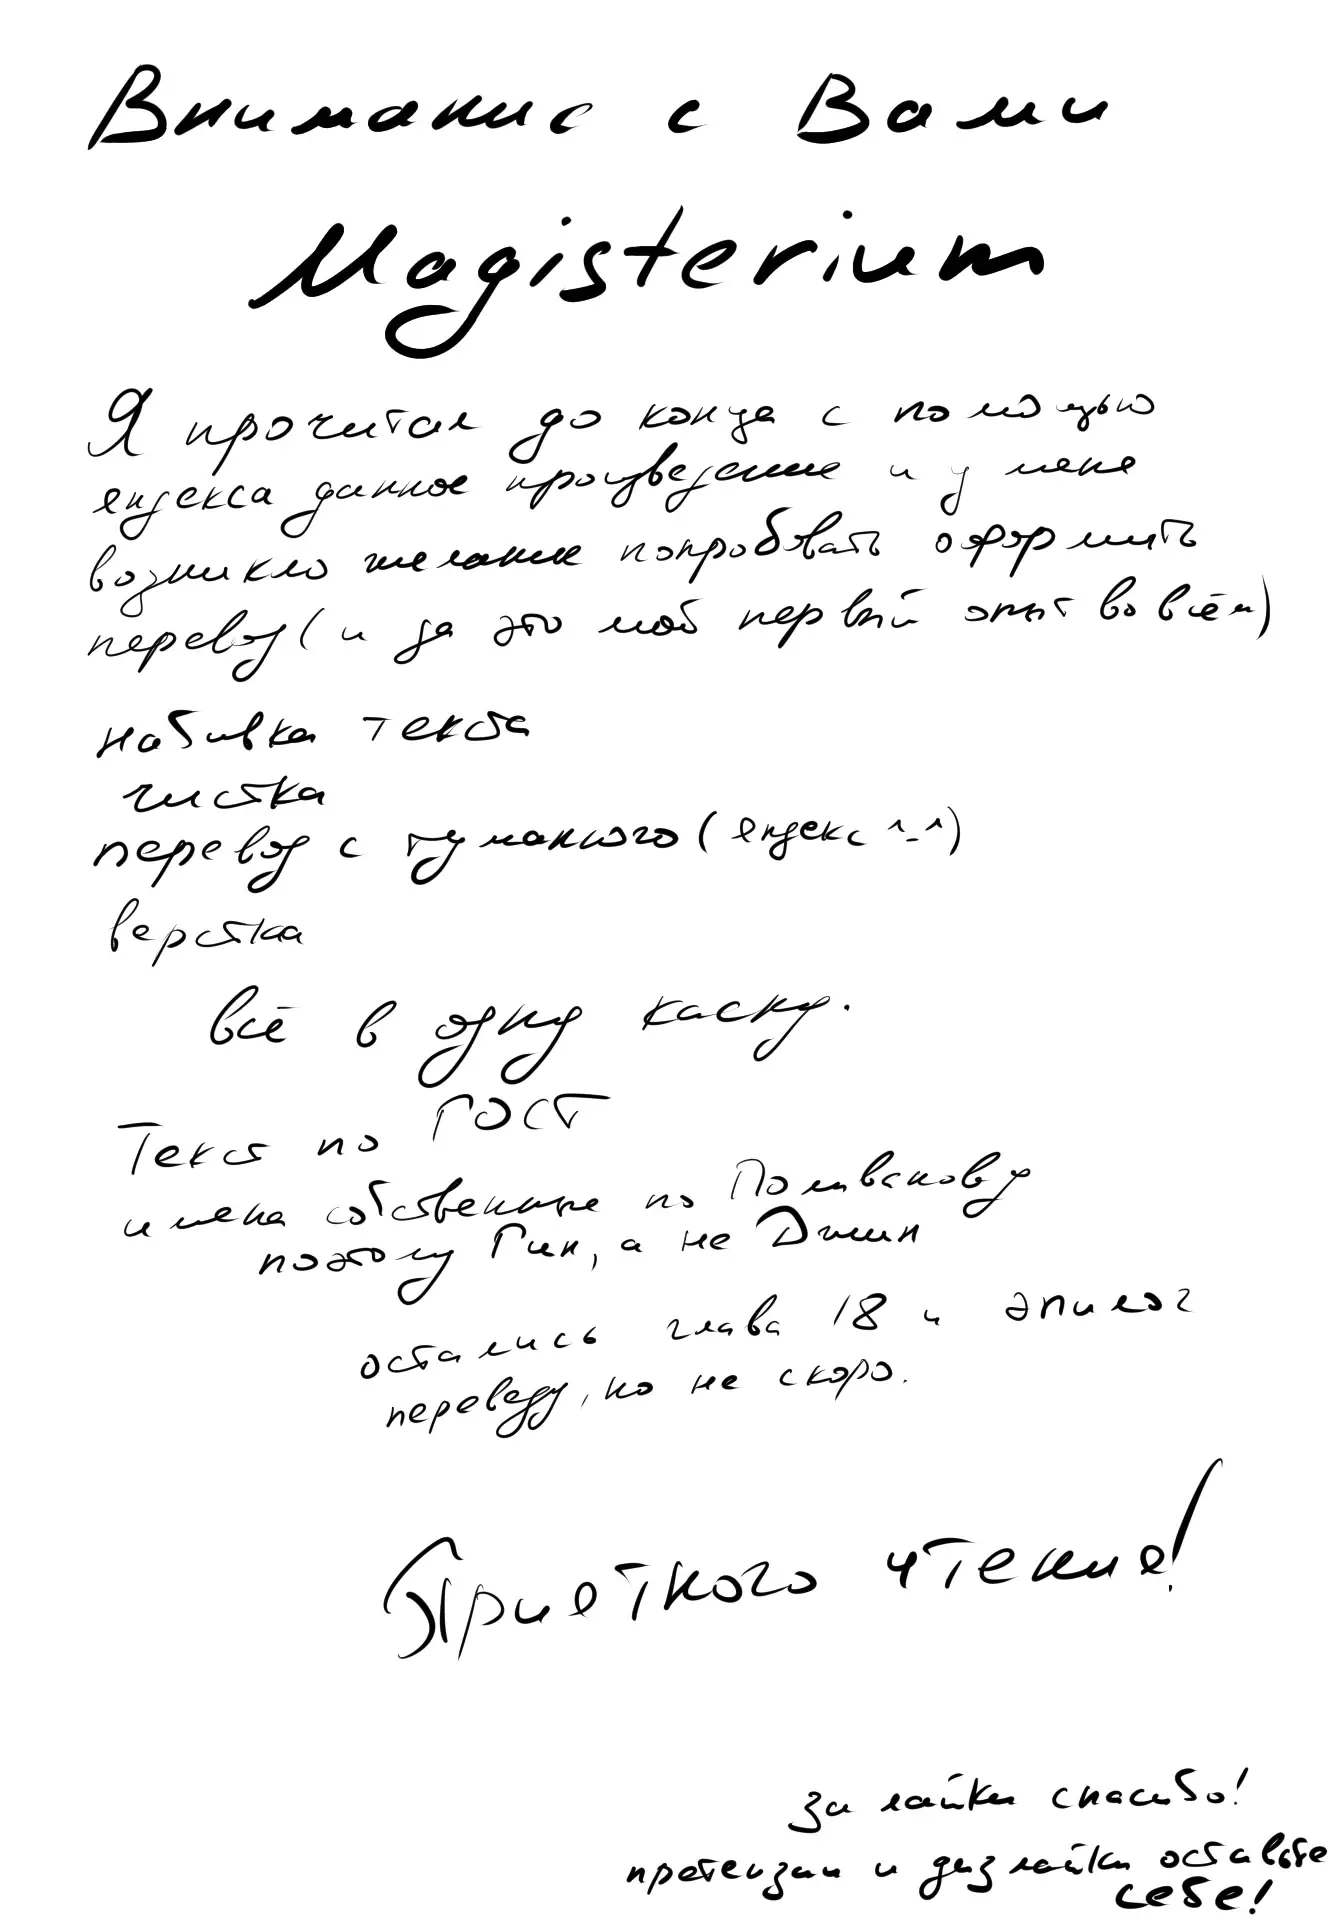 Внимание с Вами
Magisterium
Я прочитал до конца с помощью
яндекса данное произведение и у меня
возникло желание попробовать оформить
перевод (и да это мой первый опыт во всём)
набивка текста
чистка
перевод с туманного (яндекс ^-^)
верстка
всё в одну каску.
Текст по ГОСТ
имена собственные по Поливанову
поэтому Гин, а не Джин
остались глава 18 и эпилог
переведу, но не скоро.
Приятного чтения!
за лайки спасибо!
претензии и дизлайки оставьте
себе!